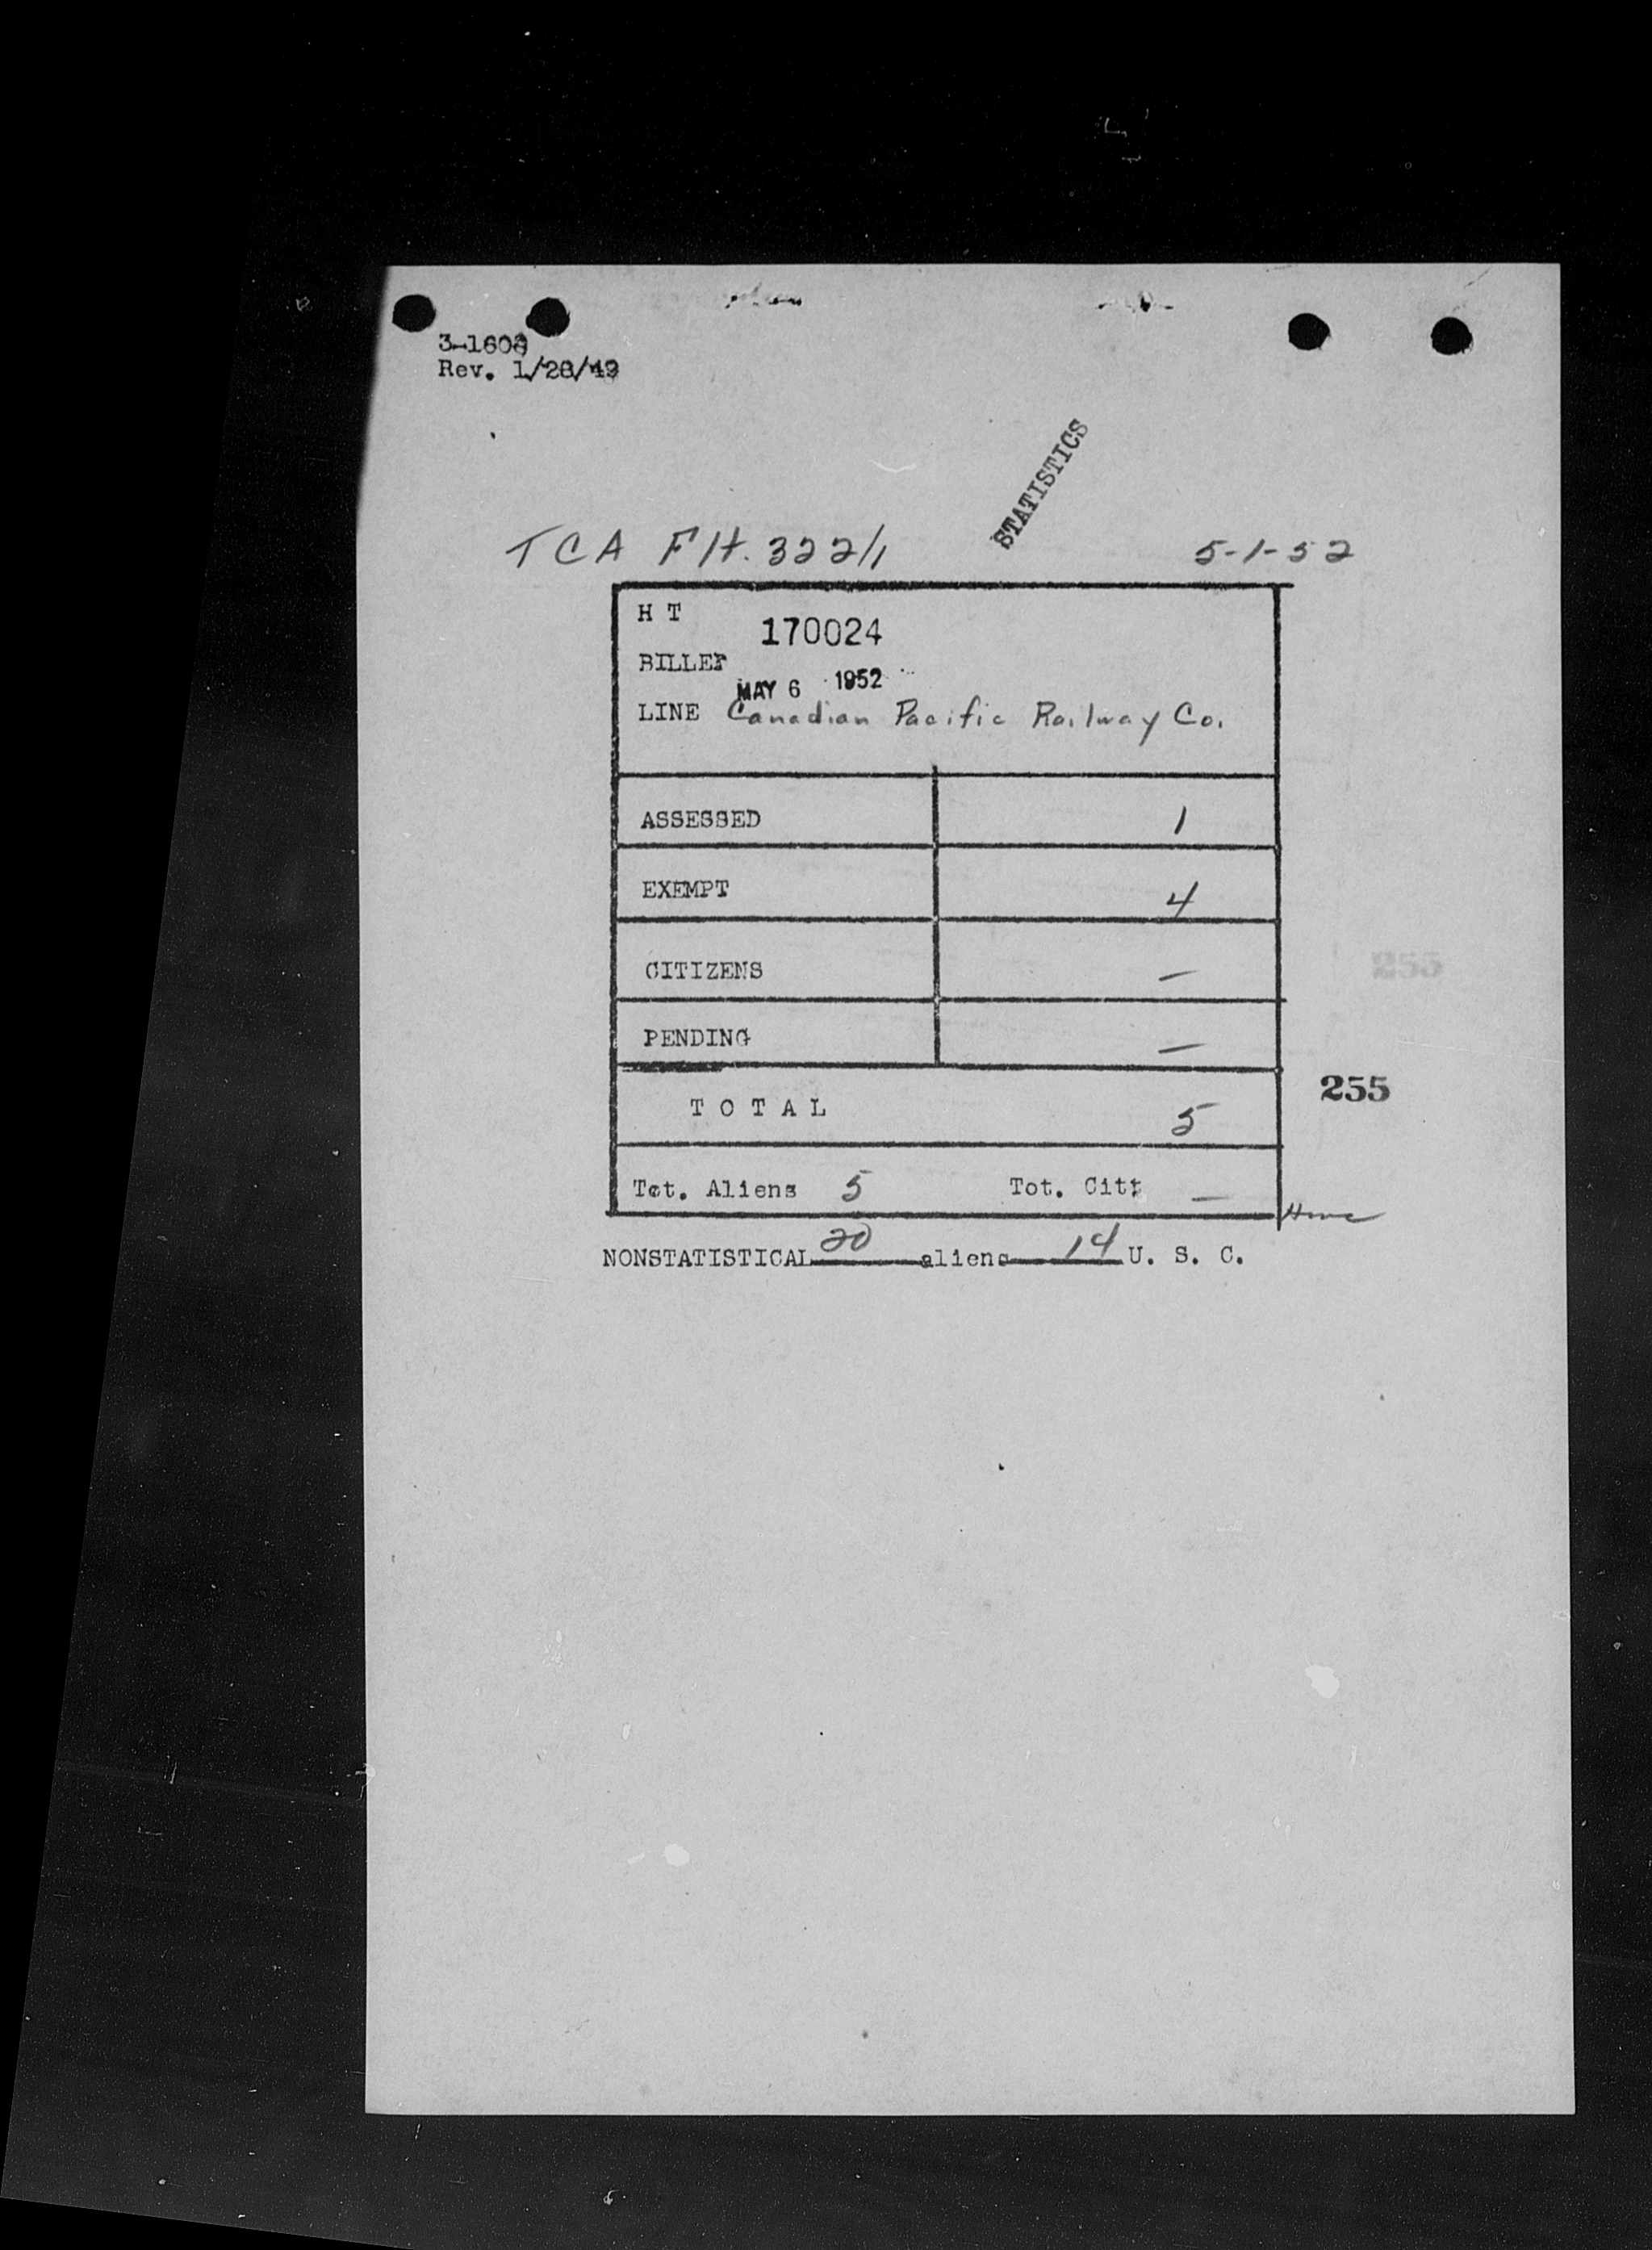 3-1608
Rev. 1/28/49
STATISTICS
TCA Flt. 322/1 5-1-52
H T 170024
BILLET
MAY 6 1952
LINE Canadian Pacific Railway Co.
ASSESSED 1
EXEMPT 4
CITIZENS —
PENDING —
255
TOTAL 5
255
Tot. Aliens 5 Tot. Cit: —
NONSTATISTICAL 20 aliens 14 U. S. C.